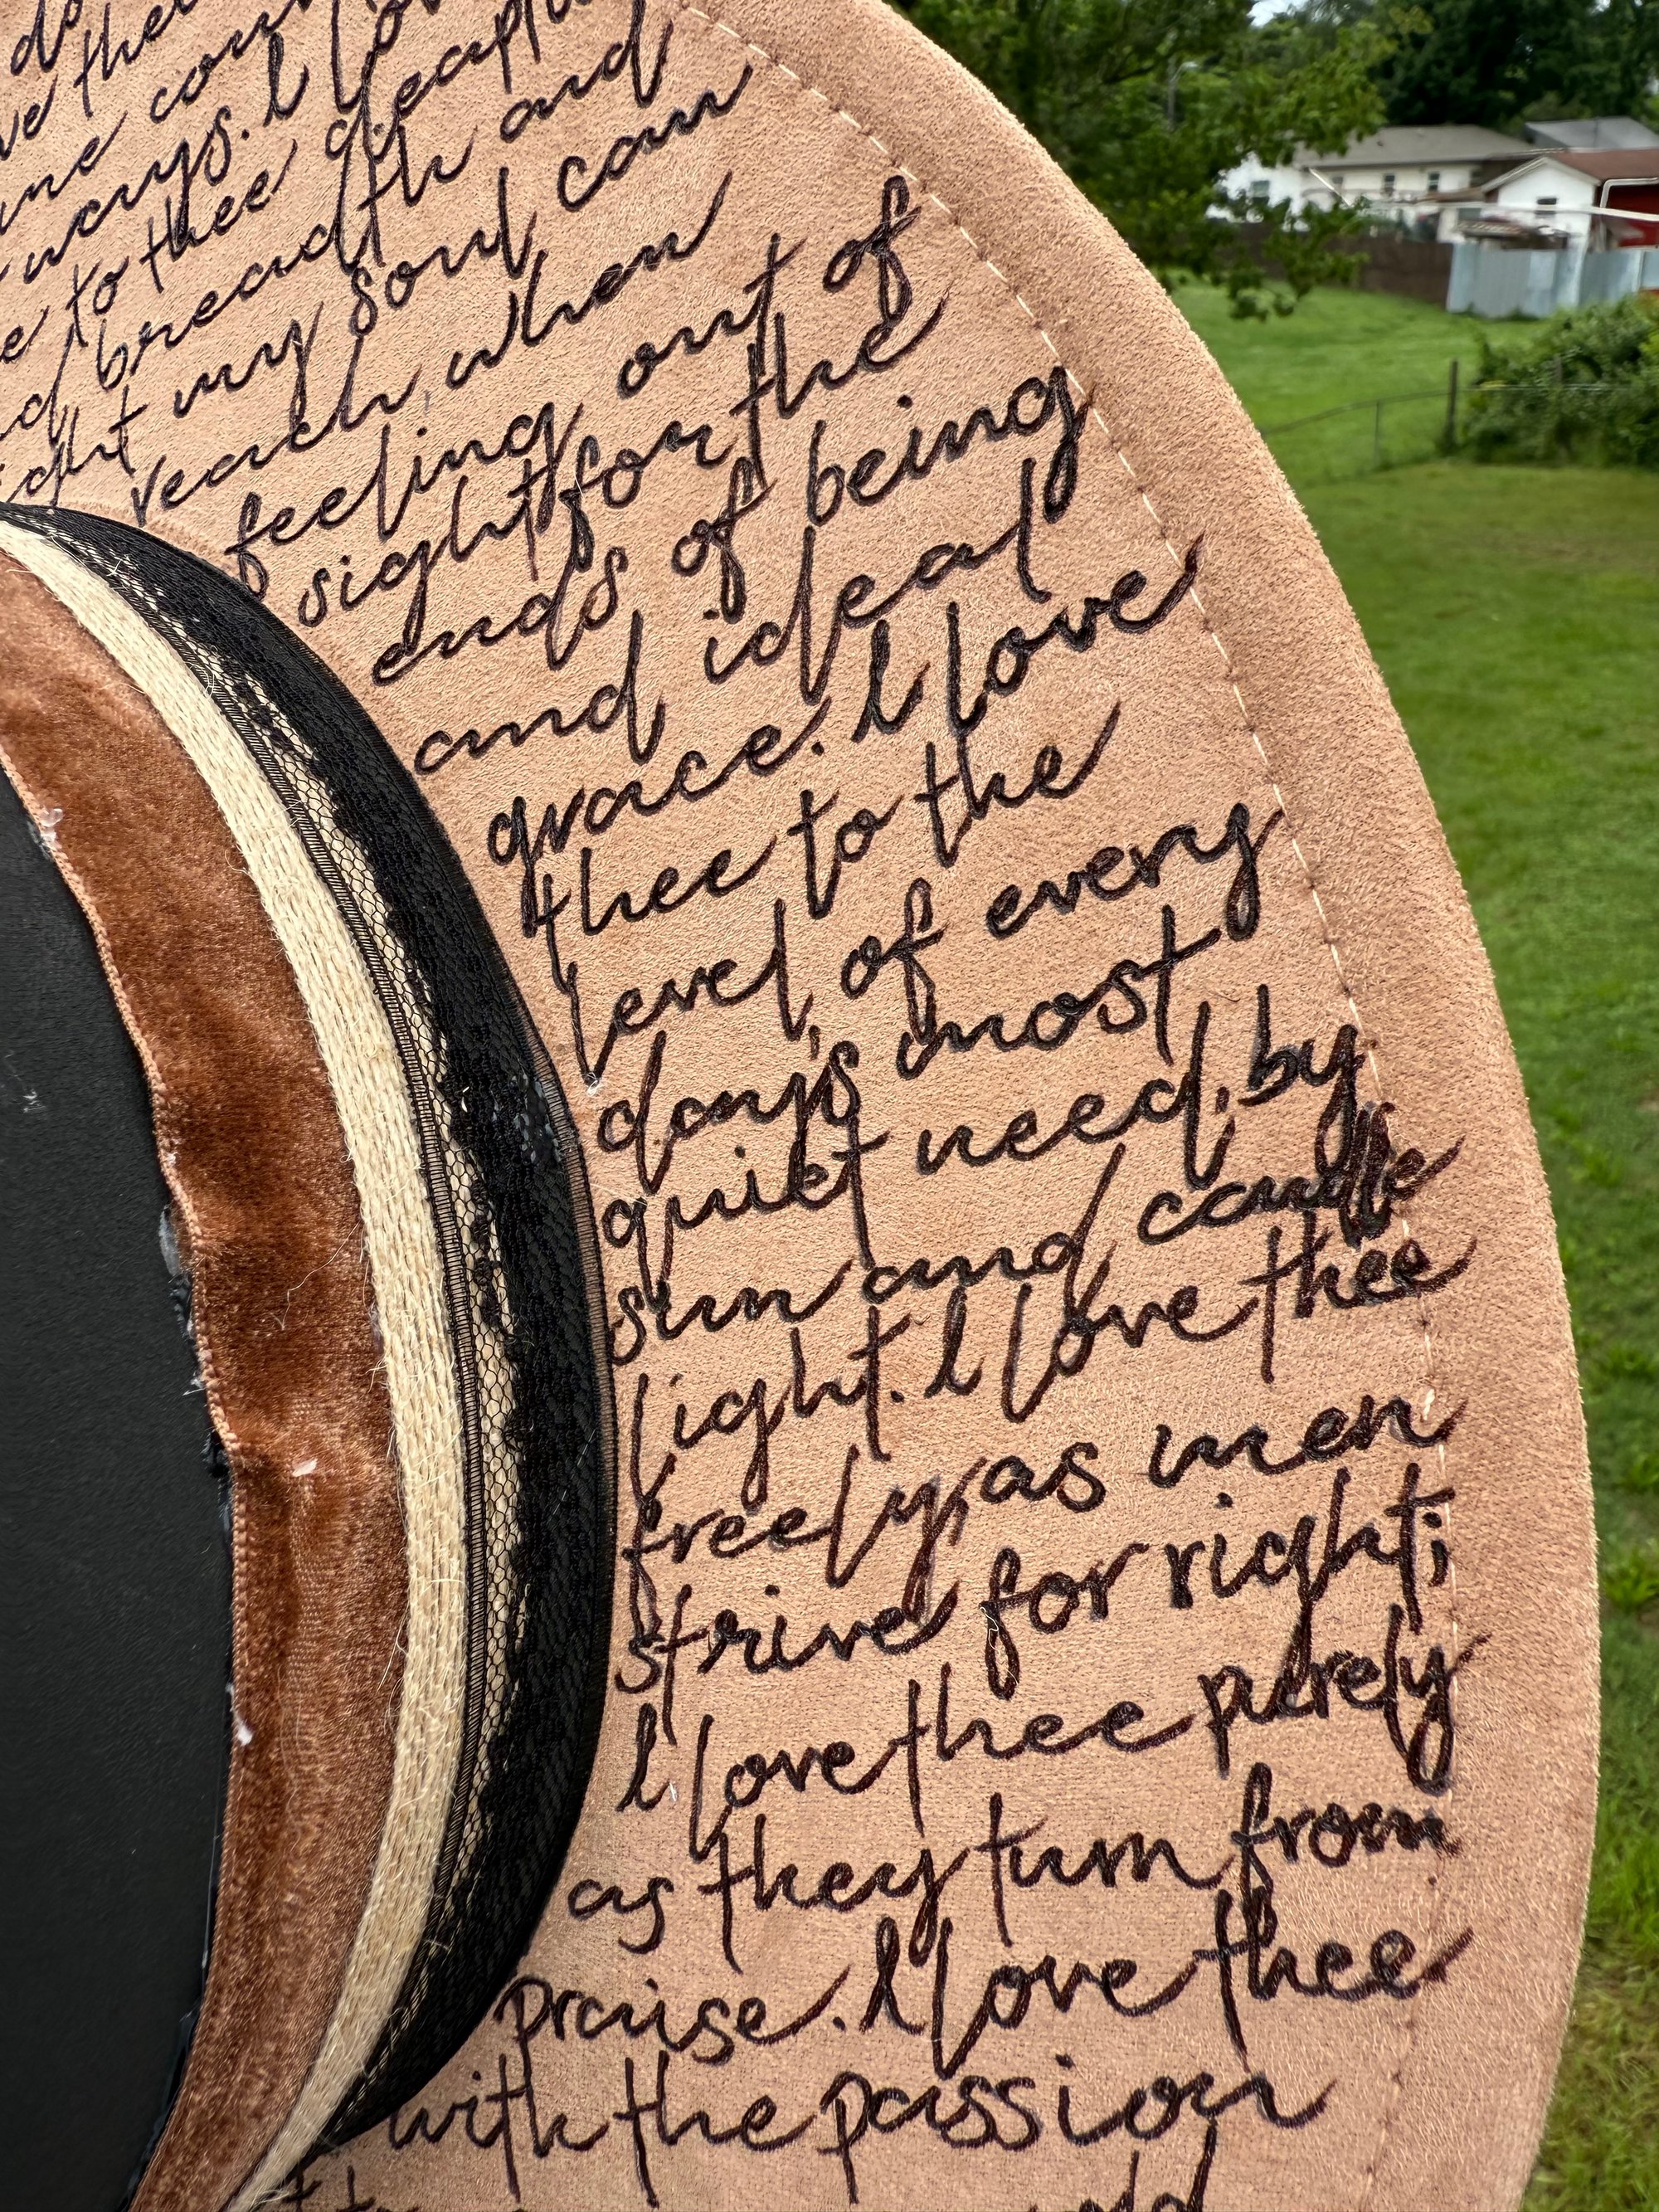 do
ve thee
me coun
ways. I lov
e to thee deapth
d breadth and
ight my soul can
reach when
feeling out of
sight for the
ends of being
and ideal
grace. I love
thee to the
level, of every
day's most
quiet need, by
sun and candle
light. I love thee
freely, as men
strive for right;
I love thee purely
as they turn from
praise. I love thee
with the passion